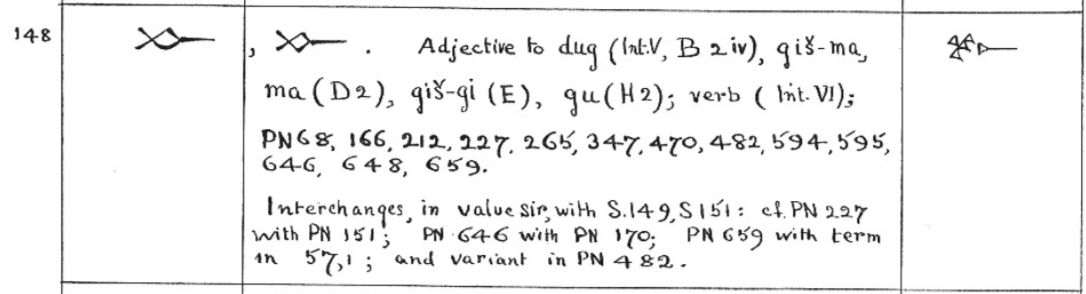 148
, . Adjective to dug (Int.V, B 2 iv), giš-ma,
ma (D2), giš-gi (E), gu (H2); verb (Int. VI);
PN 68, 166, 212, 227, 265, 347, 470, 482, 594, 595,
646, 648, 659.
Interchanges, in value sir, with S.149, S 151: cf. PN 227
with PN 151; PN 646 with PN 170; PN 659 with term
in 57,1; and variant in PN 482.